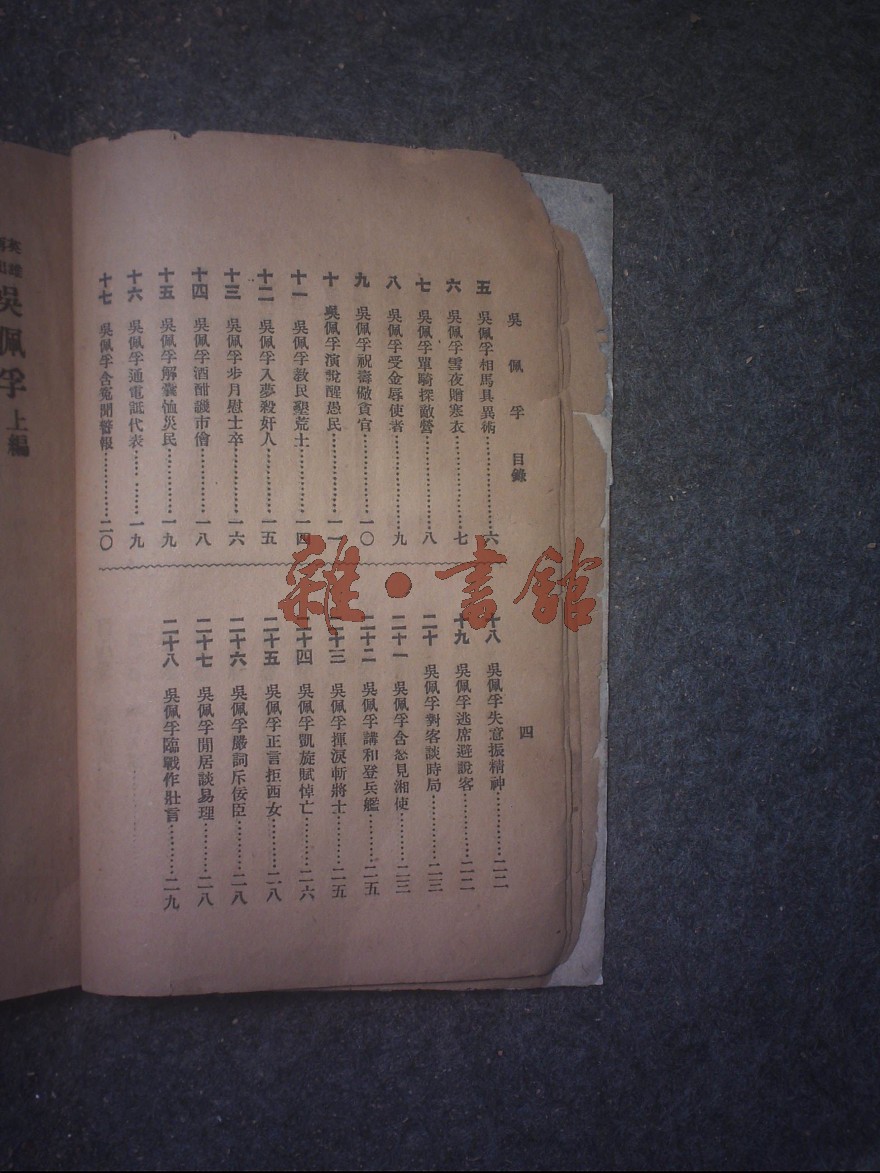 吳佩孚 目錄
五 吳佩孚相馬具異術……六
六 吳佩孚雪夜贈寒衣……七
七 吳佩孚單騎探敵營……八
八 吳佩孚受金辱使者……九
九 吳佩孚祝壽儆貪官……一〇
十 吳佩孚演說醒愚民……一一
十一 吳佩孚教民墾荒土……一四
十二 吳佩孚入夢殺奸人……一五
十三 吳佩孚步月慰士卒……一六
十四 吳佩孚酒酣譏市儈……一八
十五 吳佩孚解囊恤災民……一九
十六 吳佩孚通電詆代表……一九
十七 吳佩孚含寃聞警報……二〇
四
十八 吳佩孚失意振精神……二二
十九 吳佩孚逃席避說客……二二
二十 吳佩孚對客談時局……二三
二十一 吳佩孚含怒見湘使……二三
二十二 吳佩孚講和登兵艦……二五
二十三 吳佩孚揮淚斬將士……二五
二十四 吳佩孚凱旋賦悼亡……二六
二十五 吳佩孚正言拒西女……二八
二十六 吳佩孚嚴詞斥佞臣……二八
二十七 吳佩孚閒居談易理……二八
二十八 吳佩孚臨戰作壯言……二九
吳佩孚 上編
雜·書館